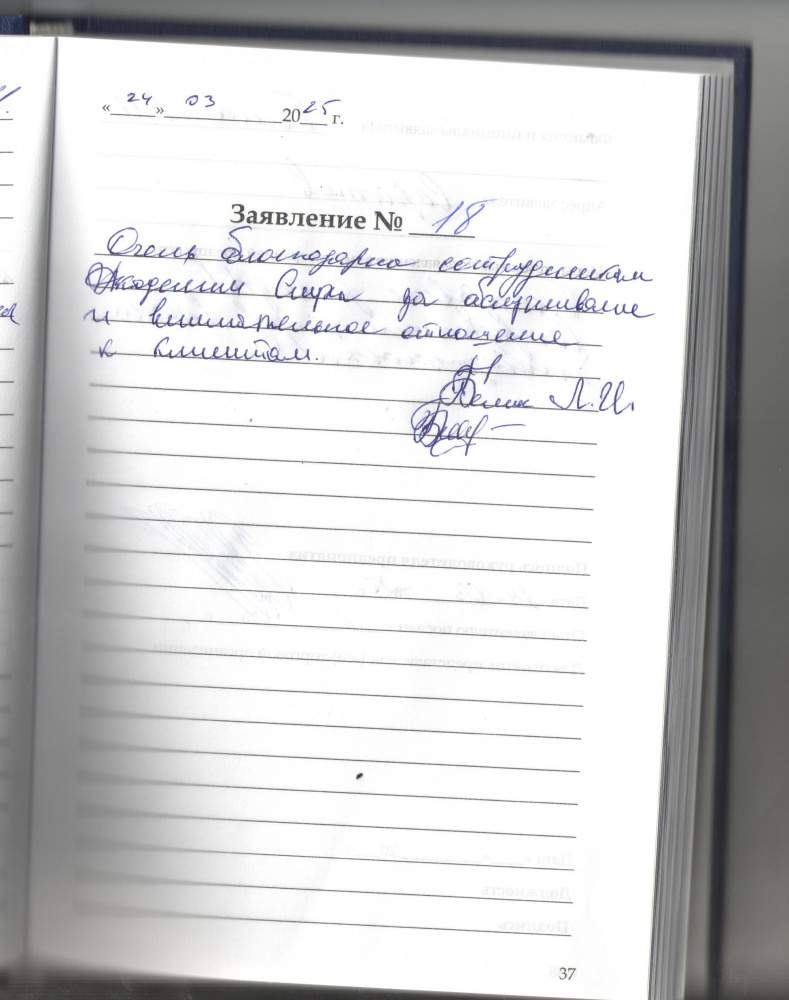 «24» 03 2025 г.
Заявление № 18
Очень благодарна сотрудникам
Академии за аслуживание
и внимательное отношение
к клиентам.
Л.И.
37